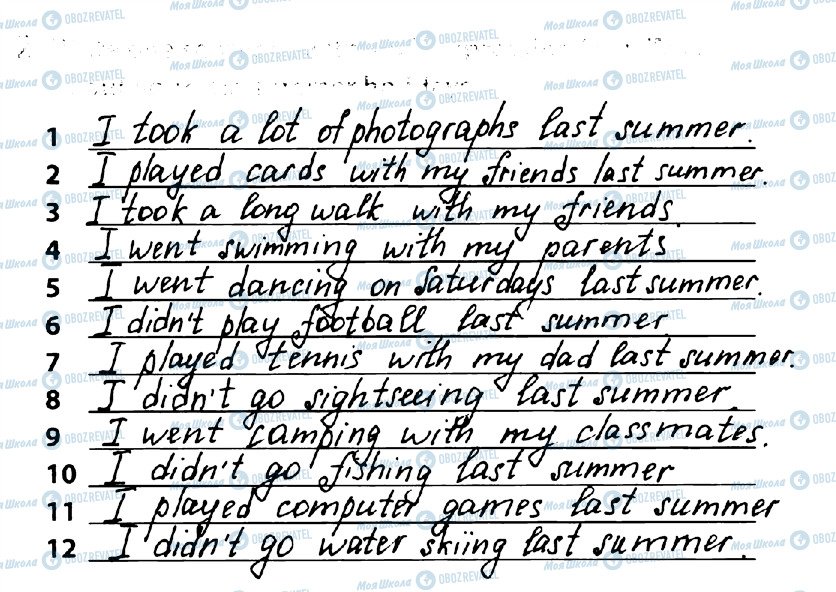 1 I took a lot of photographs last summer.
2 I played cards with my friends last summer.
3 I took a long walk with my friends.
4 I went swimming with my parents
5 I went dancing on Saturdays last summer.
6 I didn't play football last summer
7 I played tennis with my dad last summer.
8 I didn't go sightseeing last summer.
9 I went camping with my classmates.
10 I didn't go fishing last summer
11 I played computer games last summer
12 I didn't go water skiing last summer.